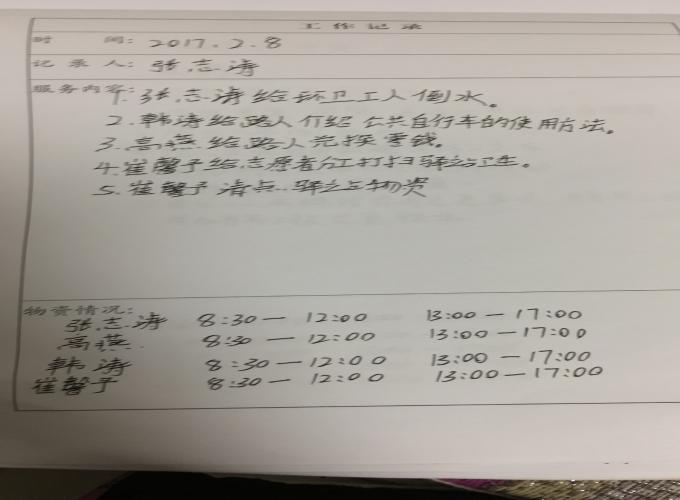 工作记录
时 间: 2017.2.8
记录人: 张志涛
服务内容:
1. 张志涛给环卫工人倒水。
2. 韩涛给路人介绍公共自行车的使用方法。
3. 高燕给路人兑换零钱。
4. 崔馨予给志愿者分工打扫驿站卫生。
5. 崔馨予清点驿站物资
物资情况:
张志涛 8:30—12:00 13:00—17:00
高燕 8:30—12:00 13:00—17:00
韩涛 8:30—12:00 13:00—17:00
崔馨予 8:30—12:00 13:00—17:00